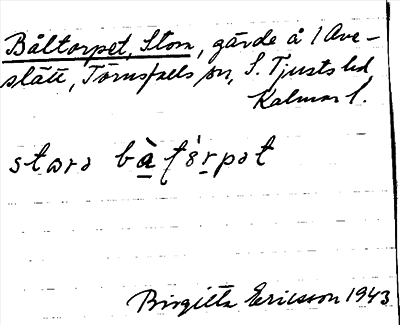 Båltorpet, Stora, gärde å 1 Ave-
slätt, Törnsfals sn, S. Tjusts hd,
Kalmar l.
stɷrə bà̱tǫ̀ṟpət
Birgitta Ericsson 1943